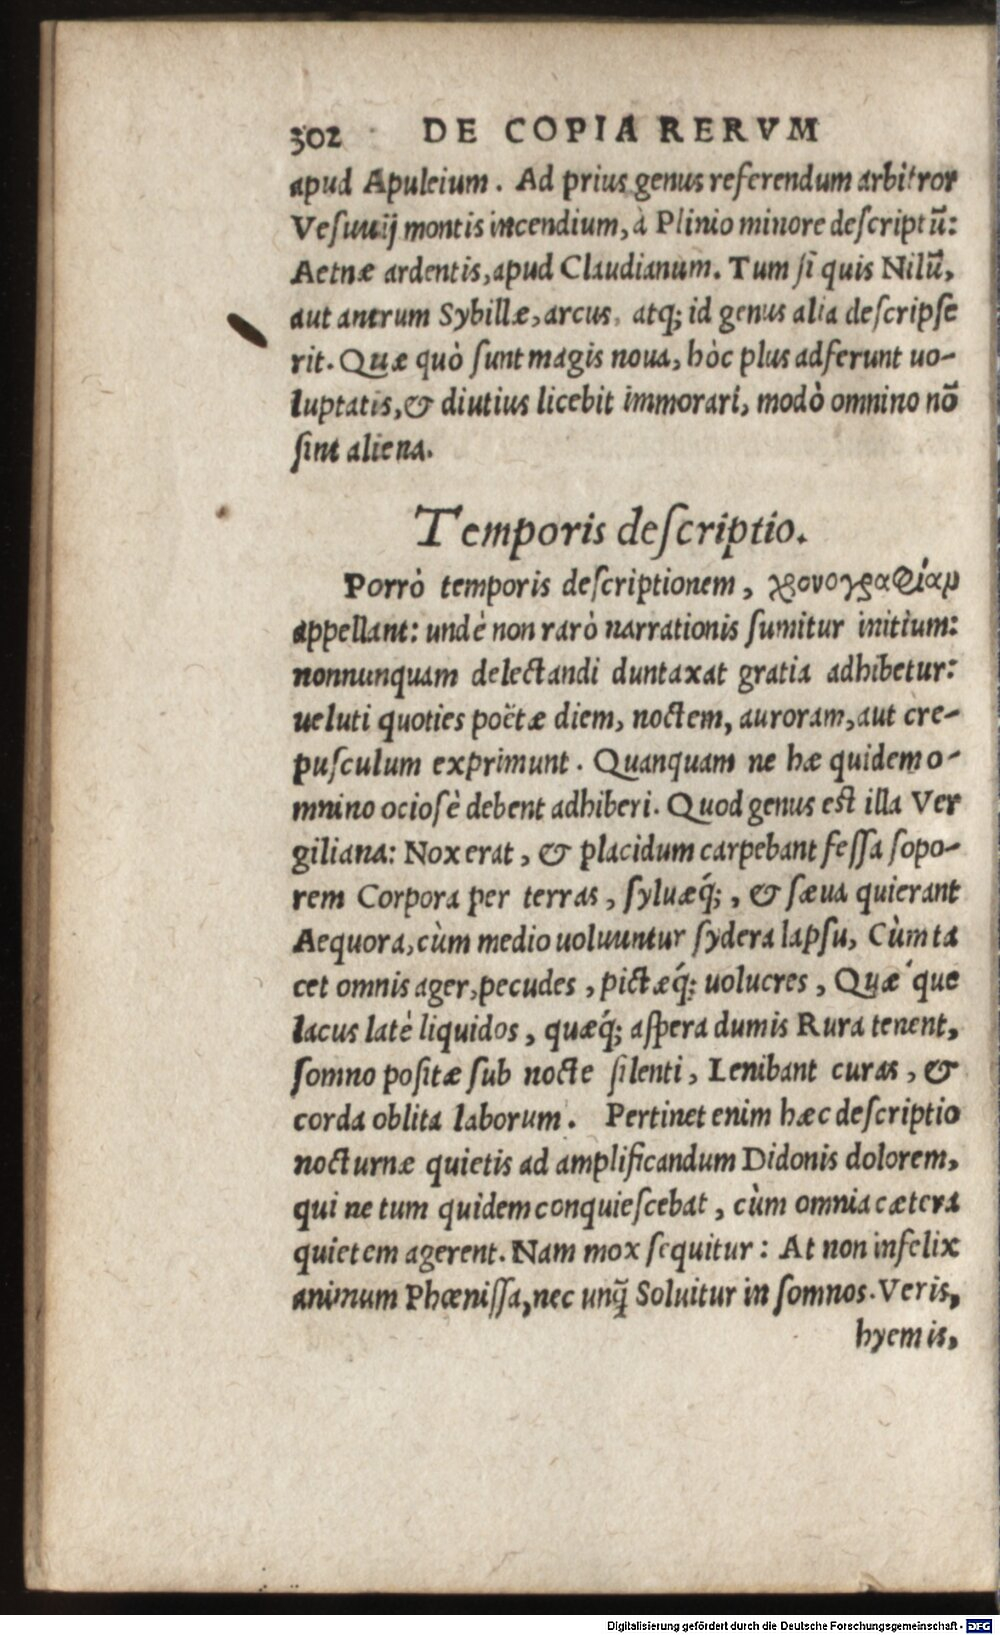 302 DE COPIA RERVM
apud Apuleium. Ad prius genus referendum arbitror
Veſuuij montis incendium, à Plinio minore deſcriptū:
Aetnæ ardentis, apud Claudianum. Tum ſi quis Nilū,
aut antrum Sybillæ, arcus, atq; id genus alia deſcripſe
rit. Quæ quò ſunt magis noua, hòc plus adferunt uo-
luptatis, & diutius licebit immorari, modò omnino nō
ſint aliena.
Temporis deſcriptio.
Porrò temporis deſcriptionem, χρονογραφίαμ
appellant: undè non rarò narrationis ſumitur initium:
nonnunquam delectandi duntaxat gratia adhibetur:
ueluti quoties poëtæ diem, noctem, auroram, aut cre-
puſculum exprimunt. Quanquam ne hæ quidem o-
mnino ocioſè debent adhiberi. Quod genus est illa Ver
giliana: Nox erat, & placidum carpebant feſſa ſopo-
rem Corpora per terras, ſyluæq́;, & ſæua quierant
Aequora, cùm medio uoluuntur ſydera lapſu, Cùm ta
cet omnis ager, pecudes, pictæq́; uolucres, Quæ que
lacus latè liquidos, quæq́; aſpera dumis Rura tenent,
ſomno poſitæ ſub nocte ſilenti, Lenibant curas, &
corda oblita laborum. Pertinet enim hæc deſcriptio
nocturnæ quietis ad amplificandum Didonis dolorem,
qui ne tum quidem conquieſcebat, cùm omnia cætera
quietem agerent. Nam mox ſequitur: At non infelix
animum Phœniſſa, nec unq̄ Soluitur in ſomnos. Veris,
hyemis,
Digitalisierung gefördert durch die Deutsche Forschungsgemeinschaft - DFG